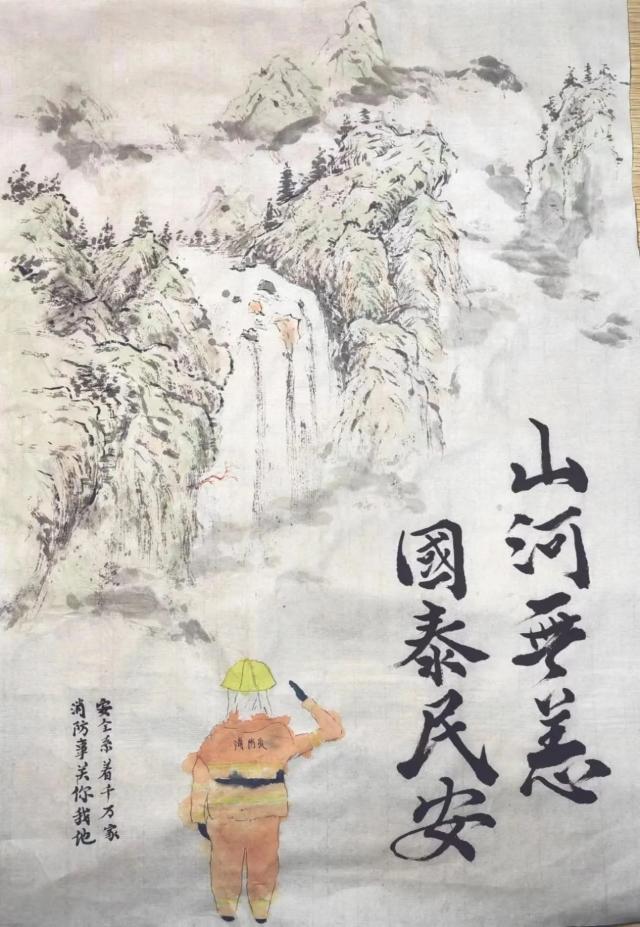 山河無恙
國泰民安
安全系着千万家
消防事关你我他
消防